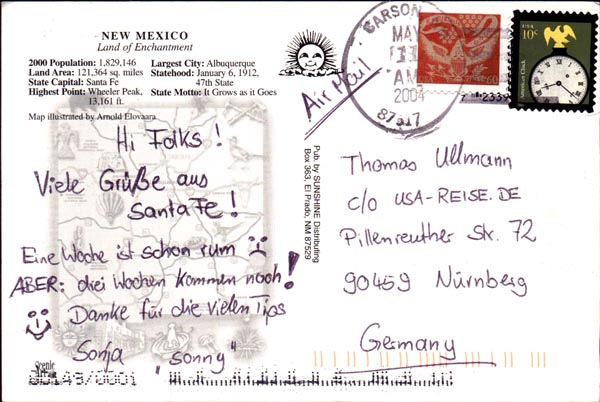 NEW MEXICO
Land of Enchantment
2000 Population: 1,829,146
Land Area: 121,364 sq. miles
State Capital: Santa Fe
Highest Point: Wheeler Peak,
13,161 ft.
Largest City: Albuquerque
Statehood: January 6, 1912,
47th State
State Motto: It Grows as it Goes
Map illustrated by Arnold Elovaara
Hi Folks!
Viele Grüße aus
Santa Fe!
Eine Woche ist schon rum
ABER: drei Wochen kommen noch!
Danke für die vielen Tips
Sonja "sonny"
Scenic
Art
00149/0001
Pub. by SUNSHINE Distributing
Box 363, El Prado, NM 87529
Air Mail
CARSON
MAY
11
AM
2004
87517
USA
10c
American Clock
Thomas Ullmann
c/o USA-REISE.DE
Pillenreuther Str. 72
90459 Nürnberg
Germany